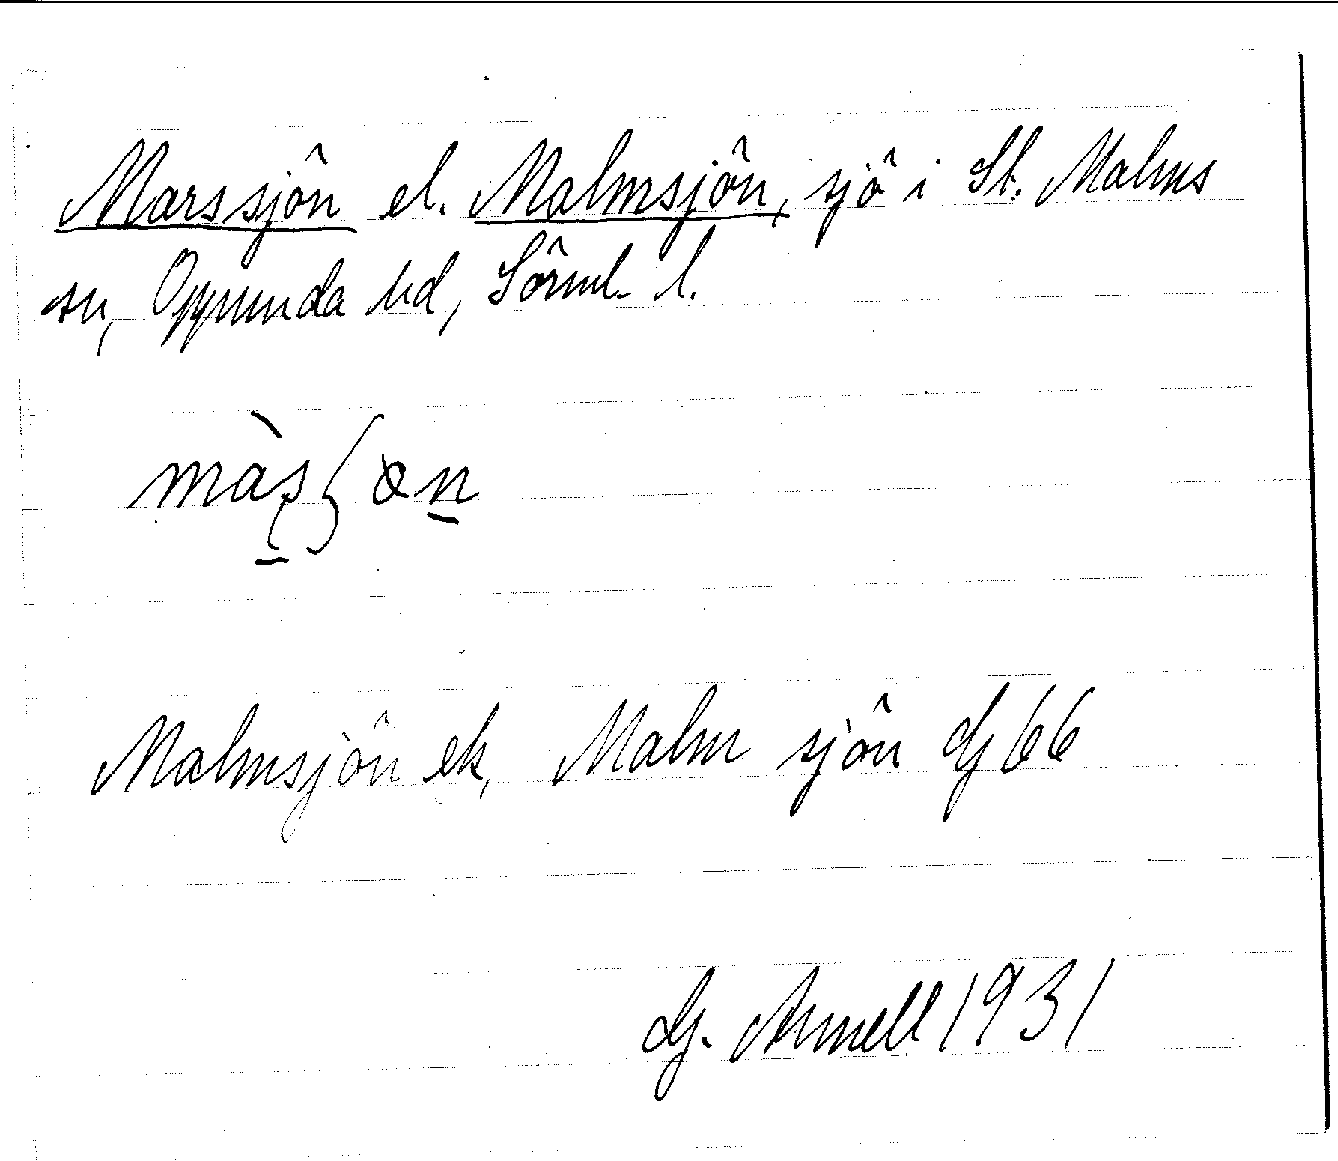 Marssjön el. Malmsjön, sjö i St. Malms
sn, Oppunda hd, Sörml. l.
Malmsjön ek, Malm sjön Gj 66
G. Armell 1931